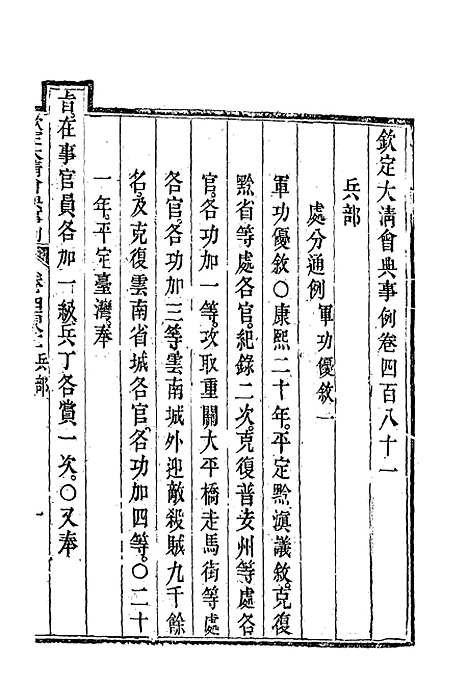 欽定大淸會典事例卷四百八十一
兵部
處分通例 軍功優敘一
軍功優敘〇康熙二十年平定黔滇議敘克復
黔省等處各官紀錄二次克復普安州等處各
官各功加一等攻取重關大平橋走馬街等處
各官各功加三等雲南城外迎敵殺賊九千餘
名及克復雲南省城各官各功加四等〇二十
一年平定臺灣奉
旨在事官員各加一級兵丁各賞一次〇又奉
欽定大淸會典事例 卷四百八十一 兵部 一